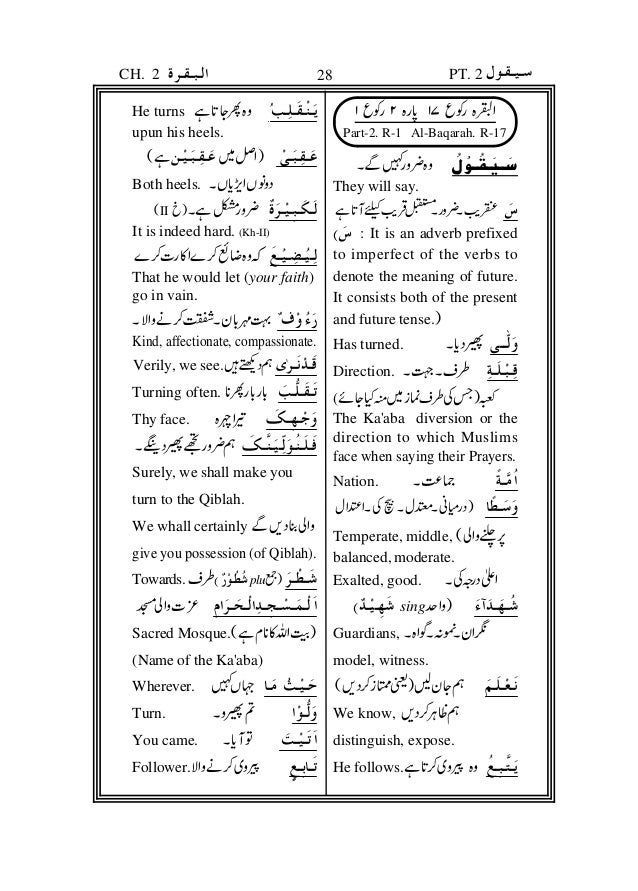 CH. 2 البقرة 28 PT. 2 سیقول
البقرہ رکوع ۱۷ پارہ ۲ رکوع ۱
Part-2. R-1 Al-Baqarah. R-17
سَيَقُوْلُ وہ ضرور کہیں گے۔
They will say.
سَ عنقریب۔ ضرور۔ مستقبل قریب کیلئے آتا ہے
(سَ : It is an adverb prefixed
to imperfect of the verbs to
denote the meaning of future.
It consists both of the present
and future tense.)
Has turned. پھیر دیا۔ وَلّٰى
Direction. طرف۔ جہت۔ قِبْلَةِ
کعبہ (جس کی طرف نماز میں منہ کیا جائے)
The Ka'aba diversion or the
direction to which Muslims
face when saying their Prayers.
Nation. جماعت۔ اُمَّةً
وَسَطًا (درمیانی۔ معتدل۔ بیچ کی۔ اعتدا
Temperate, middle, (پر چلنے والی
balanced, moderate.
Exalted, good. اعلیٰ درجہ کی۔
شُهَدَآءَ (واحد sing شَهِيْدٌ)
Guardians, نگران۔ نمونہ۔ گواہ۔
model, witness.
نَعْلَمَ ہم جان لیں (یعنی ممتاز کر دیں)
We know, ہم ظاہر کر دیں
distinguish, expose.
He follows. وہ پیروی کرتا ہے۔ يَّتَّبِعُ
He turns وہ پھر جاتا ہے يَنْقَلِبُ
upun his heels.
عَقِبَيْ (اصل میں عَقِبَيْنِ ہے)
Both heels. دونوں ایڑیاں۔
لَكَبِيْرَةً ضرور مشکل ہے۔ (خ II)
It is indeed hard. (Kh-II)
لِيُضِيْعَ کہ وہ ضائع کرے اکارت کرے
That he would let (your faith)
go in vain.
رَءُوْفٌ بہت مہربان۔ شفقت کرنے والا۔
Kind, affectionate, compassionate.
Verily, we see. ہم دیکھتے ہیں قَدْنَرٰى
Turning often. بار بار پھرنا تَقَلُّبَ
Thy face. تیرا چہرہ وَجْهِكَ
فَلَنُوَلِّيَنَّكَ ہم ضرور تجھے پھیر دینگے۔
Surely, we shall make you
turn to the Qiblah.
We whall certainly والی بنادیں گے
give you possession (of Qiblah).
Towards. طرف (شُطُوْرٌ plu جمع) شَطْرَ
اَلْمَسْجِدِالْحَرَامِ عزت والی مسجد
Sacred Mosque. (بیت اللہ کا نام ہے)
(Name of the Ka'aba)
Wherever. جہاں کہیں حَيْثُ مَا
Turn. تم پھیرو۔ وَلُّوْا
You came. تو آیا۔ اَتَيْتَ
Follower. پیروی کرنے والا۔ تَابِعٍ